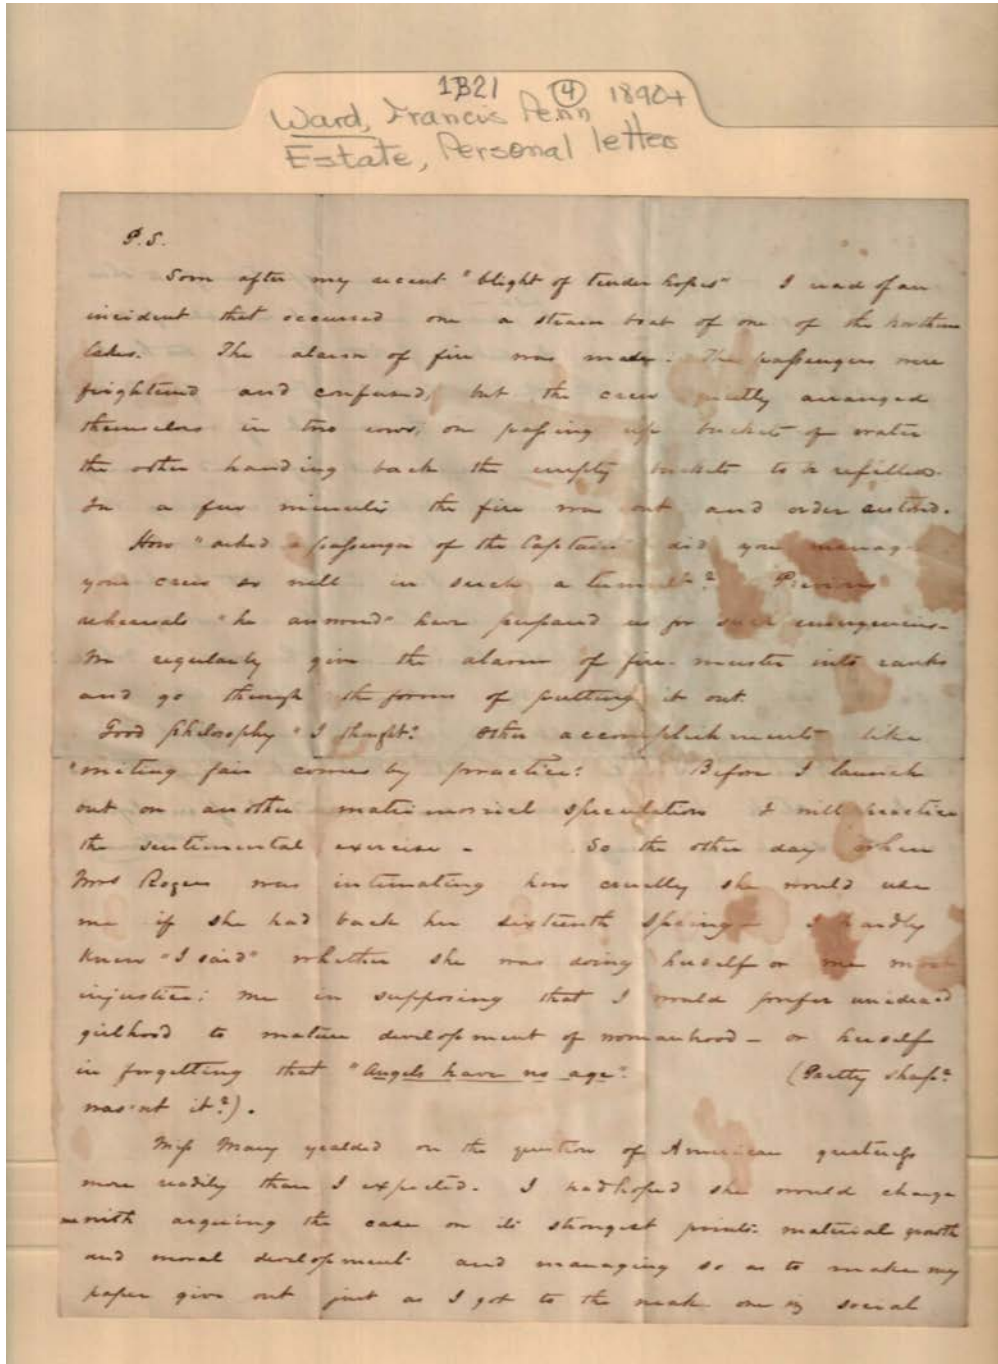 1821 ④ 1890+
Ward, Francis Penn
Estate, Personal letter
P.S.
Soon after my recent "blight of tender hopes" I read of an
incident that occurred one a steam boat of one of the northern
lakes. The alarm of fire was made. The passengers were
frightened and confused, but the crew quietly arranged
themselves in two rows, one passing up buckets of water
the other handing back the empty buckets to be refilled.
In a few minutes the fire was out and order restored.
How "asked a passenger of the Captain" did you manage
your crew so well in such a tumult? Previous
rehearsals "he answered" have prepared us for such emergencies.
We regularly give the alarm of fire - muster into ranks
and go through the forms of putting it out.
Good philosophy "I thought". Other accomplishments like
"writing fair comes by practice". Before I launch
out on another matrimonial speculation I will practice
the sentimental exercise - So the other day when
Mrs Rogers was intimating how cruelly she would use
me if she had back her sixteenth spring - I hardly
knew "I said" whether she was doing herself or me more
injustice; me in supposing that I would prefer
girlhood to mature development of womanhood - or herself
in forgetting that "Angels have no age". (Pretty sharp
was'nt it?).
Miss Mary yealded on the question of American greatness
more readily than I expected. I had hoped she would charge
me with arguing the case on its strongest points: material growth
and moral development and managing so as to make my
paper give out just as I got to the weak one in social